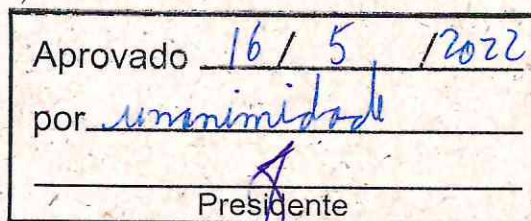 Aprovado 16 / 5 /2022
por unanimidade
Presidente